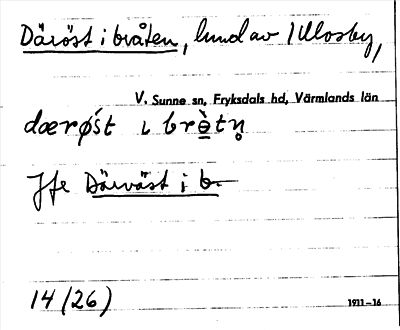 Däröst i bråten, lund av Ulvsby,
V. Sunne sn, Fryksdals hd, Värmlands län
dærǿst ɩ brètn̥
Jfe Därväst i b-
14 (26) 1911–16